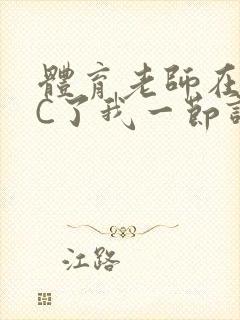 體育老師在
C了我一節
江路